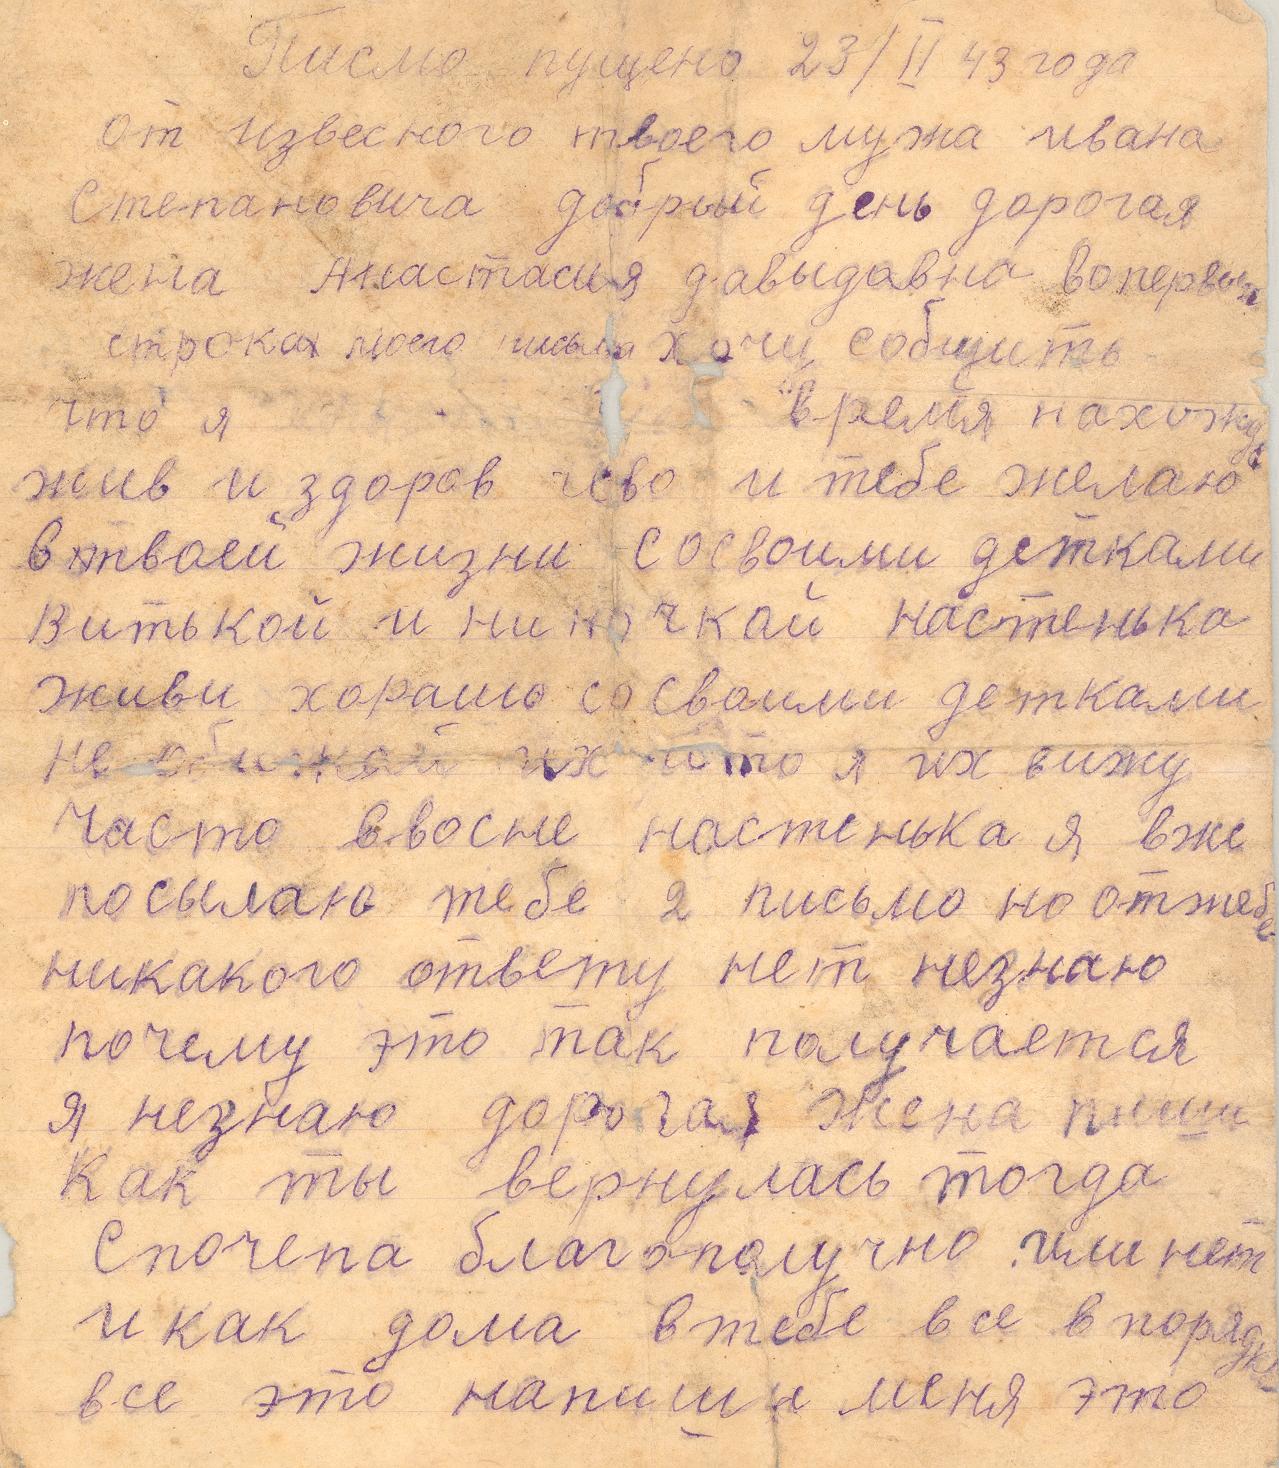 Писмо пущено 23/II 43 года
от извесного твоего мужа ивана
Степановича добрый день дорогая
жена Анастасия давыдавна вопервых
строках моего письма хочу собщить
что я время нахожус
жив и здоров чево и тебе желаю
в твоей жизни сосвоими детками
Витькой и ниночкай настенька
живи хорашо сосваими детками
не обижай их я их вижу
часто ввосне настенька я вже
посылаю тебе 2 письмо но оттебе
никакого ответу нет незнаю
почему это так получается
я незнаю дорогая жена пиши
Как ты вернулась тогда
Спочепа благополучно или нет
и как дома втебе все впорядке
все это напиши меня это